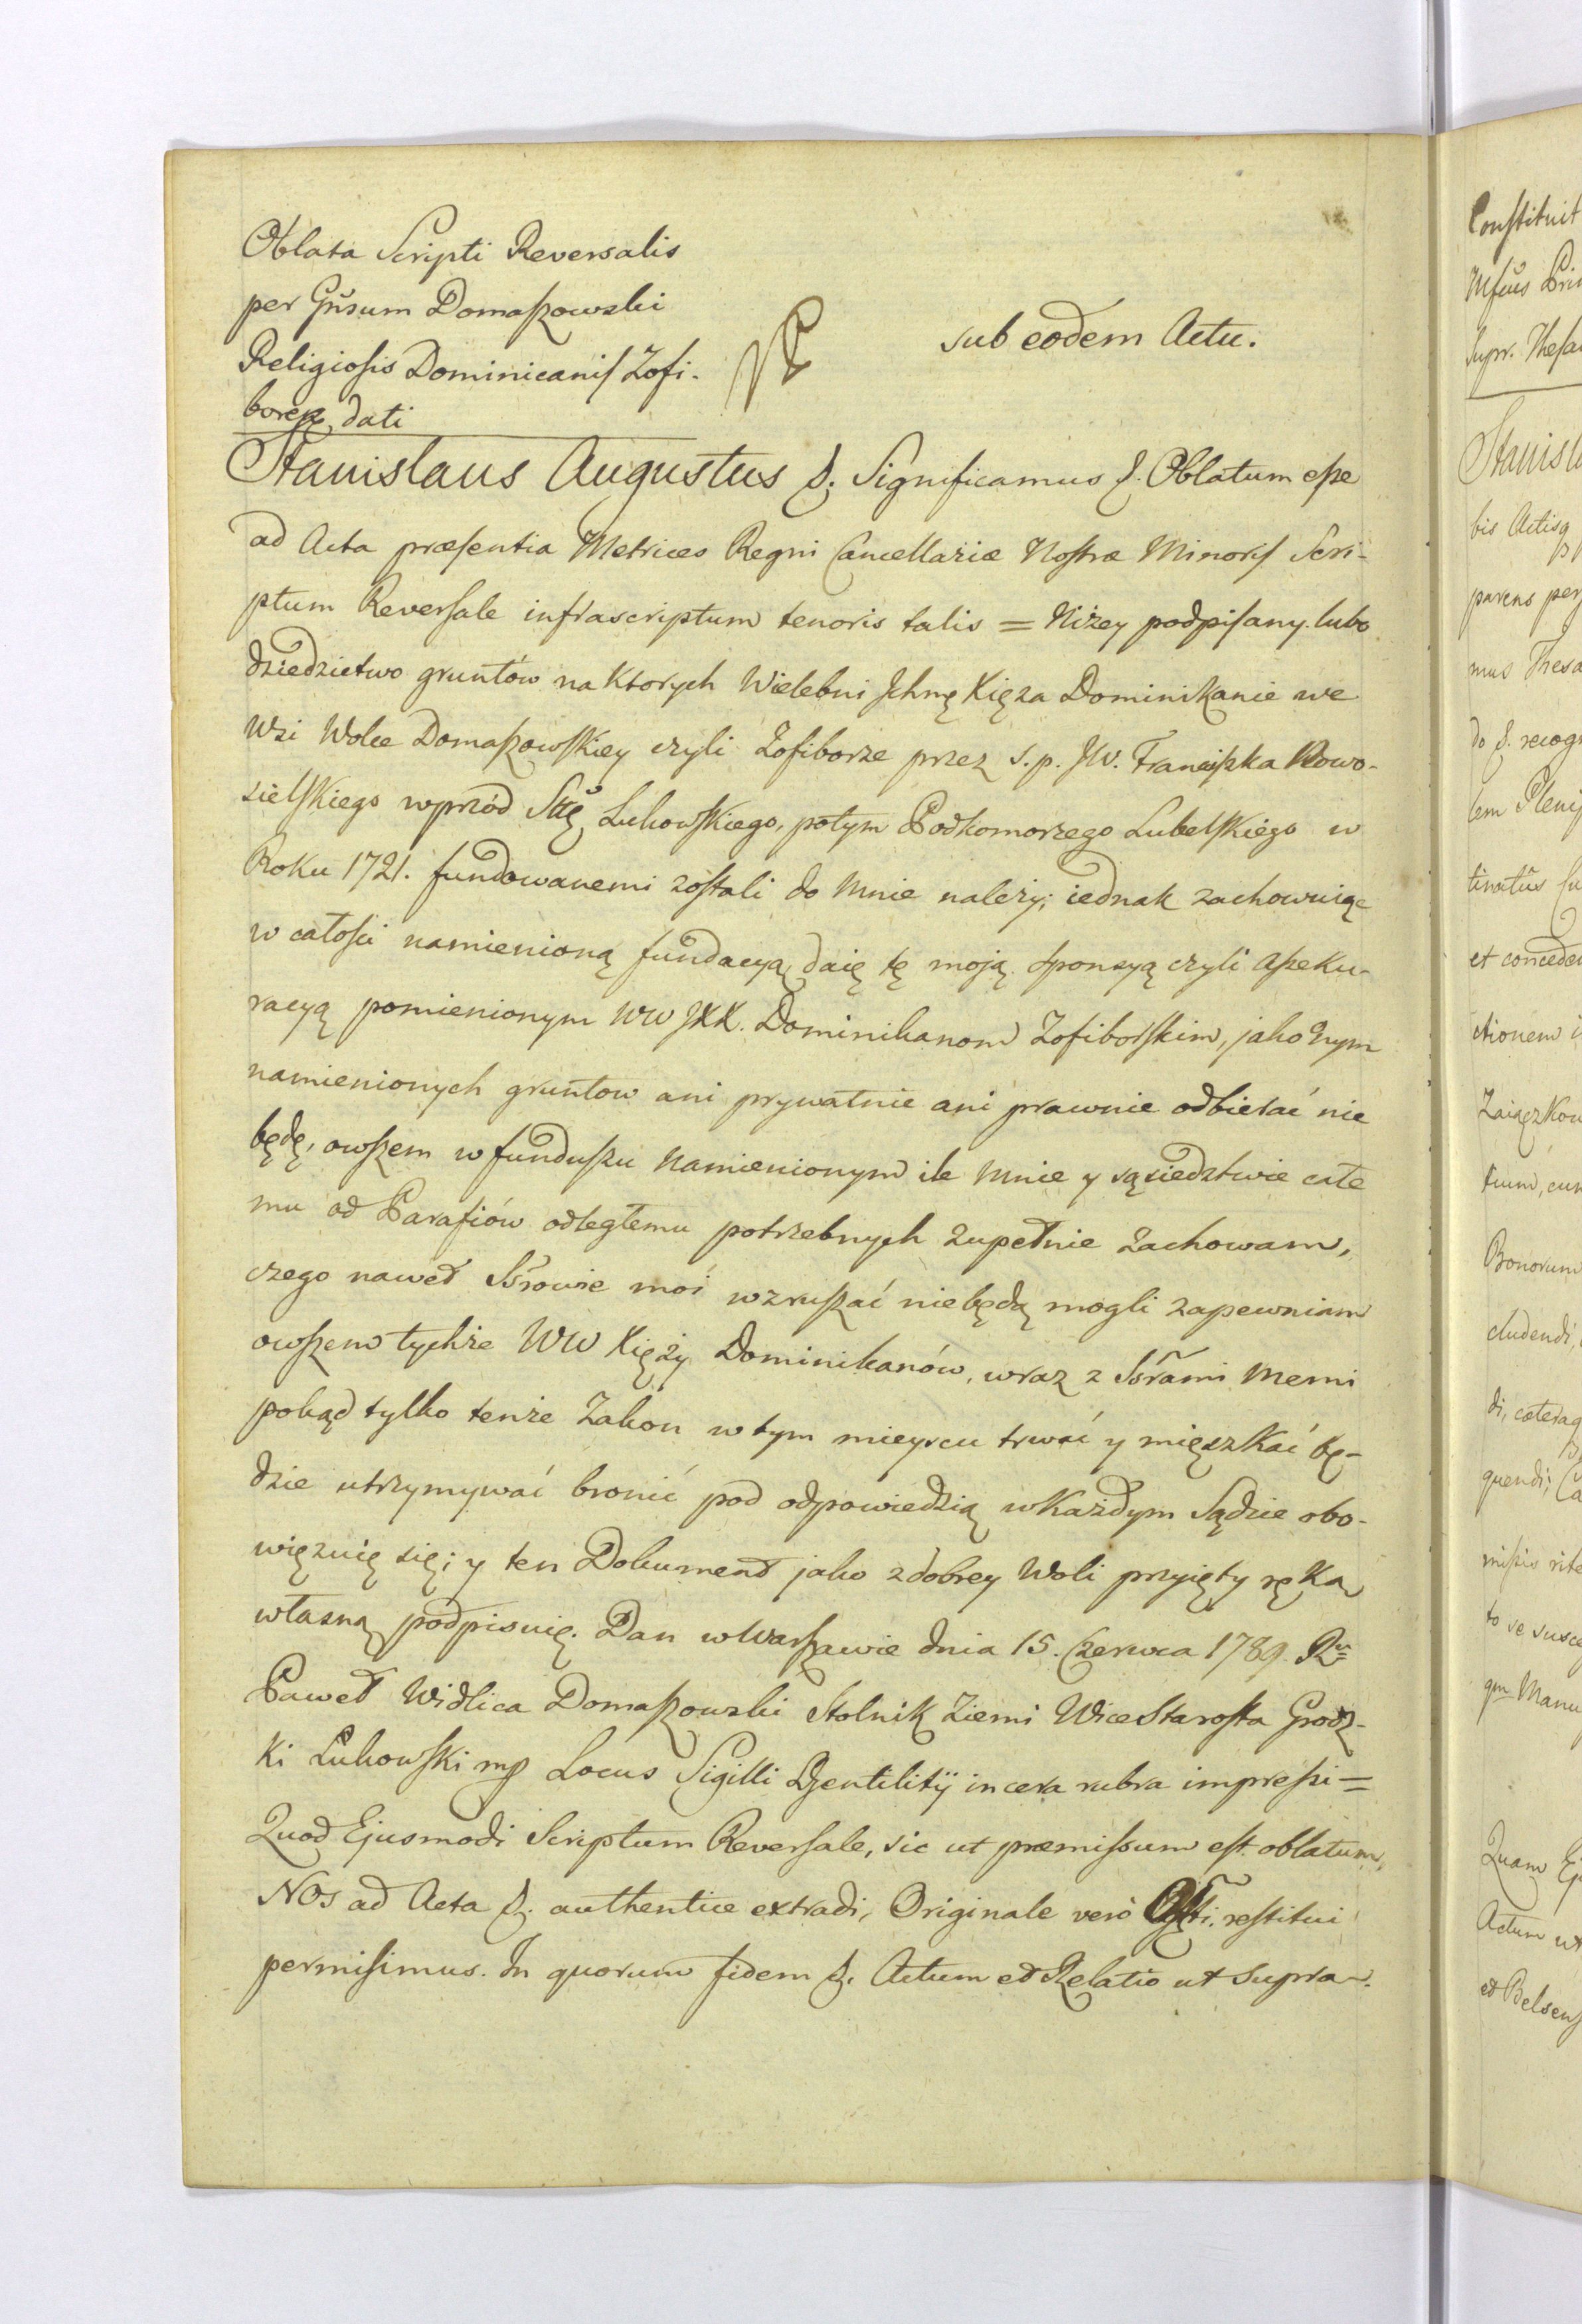 Oblata Scripti Reversalis
per Gnsum Domaszowski
Religiosis Dominicanis Zofi-
borez dati
sub eodem Actu.
Stanislaus Augustus &. Significamus &. Oblatum esse
ad Acta præsentia Metrices Regni Cancellariæ Nostræ Minoris Scri-
ptum Reversale infrascriptum tenoris talis = Niżey podpisany lubo
dziedzictwo gruntów na ktorych Wielebni Jchmę Xięza Dominikanie we
Wsi Wolce Domaszowskiey czyli Zofiborze przez s. p. JW. Franciszka Nowo-
sielskiego wprzód Sttę Łukowskiego, potym Podkomorzego Lubelskiego w
Roku 1721. fundowanemi zostali do mnie należy; iednak zachowuiąc
w całości namienioną fundacyą, daię tę moją sponsyą czyli assseku-
racyą pomienionym WW JXX. Dominikanom Zofiborskim, jako Onym
namienionych gruntow ani prywatnie ani prawnie odbierać nie
będę, owszem w funduszu namienionym ile mnie y sąsiedztwie całe
mu od Parafiów odległemu potrzebnych zupełnie zachowam,
czego nawet Ssrowie moi wzruszać niebędą mogli zapewniam
owszem tychże WW Xięży Dominikanów, wraz z Ssrami memi
pokąd tylko tenże Zakon w tym mieyscu trwać y mięszkać bę-
dzie utrzymywać bronić pod odpowiedzią w każdym Sądzie obo-
więzuię się; y ten Dokument jako z dobrey woli przyięty ręką
własną podpisuię. Dan w Warszawie dnia 15. Czerwca 1789. Ru
Paweł Widlica Domaszowski Stolnik Ziemi WiceStarosta Grodz-
ki Łukowski mp Locus Sigilli Gentilitÿ in cera rubra impressi =
Quod Ejusmodi Scriptum Reversale, sic ut præmissum est oblatum,
NOs ad Acta &. authentice extradi, Originale verò restitui
permisimus. In quorum fidem &. Actum et Relatio ut supra.
Constituit
Stanisl
bis Actisq
parens per
mus Thesa
do &. recog
et conceder
ctionem i
Bonorum
cludendi,
quendi;
to se susce
qm Manu
Quam Ej
Actum ut
et Belsens